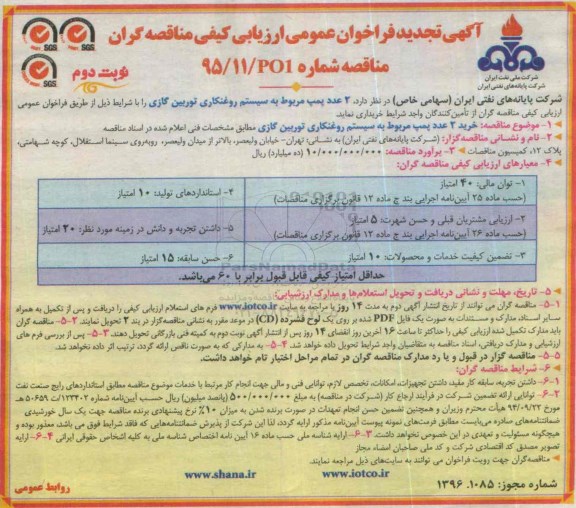 آگهی تجدید فراخوان عمومی ارزیابی کیفی مناقصه گران
مناقصه شماره ۹۵/۱۱/PO1
نوبت دوم
SGS
SGS
SGS
شرکت ملی نفت ایران
شرکت پایانه‌های نفتی ایران
شرکت پایانه‌های نفتی ایران (سهامی خاص) در نظر دارد، ۲ عدد پمپ مربوط به سیستم روغنکاری توربین گازی را با شرایط ذیل از طریق فراخوان عمومی
ارزیابی کیفی مناقصه گران از تأمین‌کنندگان واجد شرایط خریداری نماید.
۱- موضوع مناقصه: خرید ۲ عدد پمپ مربوط به سیستم روغنکاری توربین گازی مطابق مشخصات فنی اعلام شده در اسناد مناقصه.
۲- نام و نشانی مناقصه‌گزار: (شرکت پایانه‌های نفتی ایران) به نشانی: تهران- خیابان ولیعصر، بالاتر از میدان ولیعصر، روبه‌روی سینما استقلال، کوچه شهامتی،
پلاک ۱۲، کمیسیون مناقصات ۳- برآورد مناقصه: ۱۰/۰۰۰/۰۰۰/۰۰۰ (ده میلیارد) ریال
۴- معیارهای ارزیابی کیفی مناقصه گران:
۱- توان مالی: ۴۰ امتیاز
(حسب ماده ۲۵ آیین‌نامه اجرایی بند ج ماده ۱۲ قانون برگزاری مناقصات)
۴- استانداردهای تولید: ۱۰ امتیاز
۲- ارزیابی مشتریان قبلی و حسن شهرت: ۵ امتیاز
(حسب ماده ۲۶ آیین‌نامه اجرایی بند ج ماده ۱۲ قانون برگزاری مناقصات)
۵- داشتن تجربه و دانش در زمینه مورد نظر: ۲۰ امتیاز
۳- تضمین کیفیت خدمات و محصولات: ۱۰ امتیاز
۶- حسن سابقه: ۱۵ امتیاز
حداقل امتیاز کیفی قابل قبول برابر با ۶۰ می‌باشد.
۵- تاریخ، مهلت و نشانی دریافت و تحویل استعلام‌ها و مدارک ارزشیابی:
۵-۱- مناقصه گران می توانند از تاریخ انتشار آگهی دوم به مدت ۱۴ روز با مراجعه به سایت www.iotco.ir فرم های استعلام ارزیابی کیفی را دریافت و پس از تکمیل به همراه
سایر اسناد، مدارک و مستندات به صورت یک فایل PDF شده بر روی یک لوح فشرده (CD) در موعد مقرر به نشانی مناقصه‌گزار در بند ۲ تحویل نمایند. ۵-۲- مناقصه گران
باید مدارک تکمیل شده ارزیابی کیفی را حداکثر تا ساعت ۱۶ آخرین روز انقضای ۱۴ روز پس از انتشار آگهی نوبت دوم به کمیته فنی بازرگانی تحویل دهند. ۵-۳- پس از بررسی فرم های
ارزشیابی و مدارک دریافتی، اسناد مناقصه به متقاضیان واجد شرایط تحویل داده خواهد شد. ۵-۴- به مدارکی که به صورت ناقص ارائه گردد، ترتیب اثر داده نخواهد شد.
۵-۵- مناقصه گزار در قبول و یا رد مدارک مناقصه گران در تمام مراحل اختیار تام خواهد داشت.
۶- شرایط مناقصه گران:
۶-۱- داشتن تجربه، سابقه کار مفید، داشتن تجهیزات، امکانات، تخصص لازم، توانایی فنی و مالی جهت انجام کار مرتبط با خدمات موضوع مناقصه مطابق استانداردهای رایج صنعت نفت
۶-۲- توانایی ارائه تضمین شرکت در فرآیند ارجاع کار (شرکت در مناقصه) به مبلغ ۵۰۰/۰۰۰/۰۰۰ (پانصد میلیون) ریال حسب آیین‌نامه شماره ۱۲۳۴۰۲/ت ۵۰۶۵۹ هـ
مورخ ۹۴/۰۹/۲۲ هیأت محترم وزیران و همچنین تضمین حسن انجام تعهدات در صورت برنده شدن به میزان ۱۰٪ نرخ پیشنهادی برنده مناقصه جهت یک سال خورشیدی
ضمانتنامه‌های صادره می‌بایست مطابق فرمت‌های نمونه پیوست آیین‌نامه مذکور ارایه گردد، لذا این شرکت از پذیرش ضمانتنامه‌هایی که فاقد شرایط فوق می باشد، معذور بوده و
هیچگونه مسئولیت و تعهدی در این خصوص نخواهد داشت. ۶-۳- ارایه شناسه ملی حسب ماده ۱۶ آیین نامه اختصاص شناسه ملی به کلیه اشخاص حقوقی ایرانی ۶-۴- ارایه
تصویر مصدق کد اقتصادی شرکت و کد ملی صاحبان امضاء مجاز
مناقصه‌گران جهت رویت فراخوان می توانند به سایت‌های ذیل مراجعه نمایند.
www.shana.ir www.iotco.ir
شماره مجوز: ۱۳۹۶.۱۰۸۵
روابط عمومی